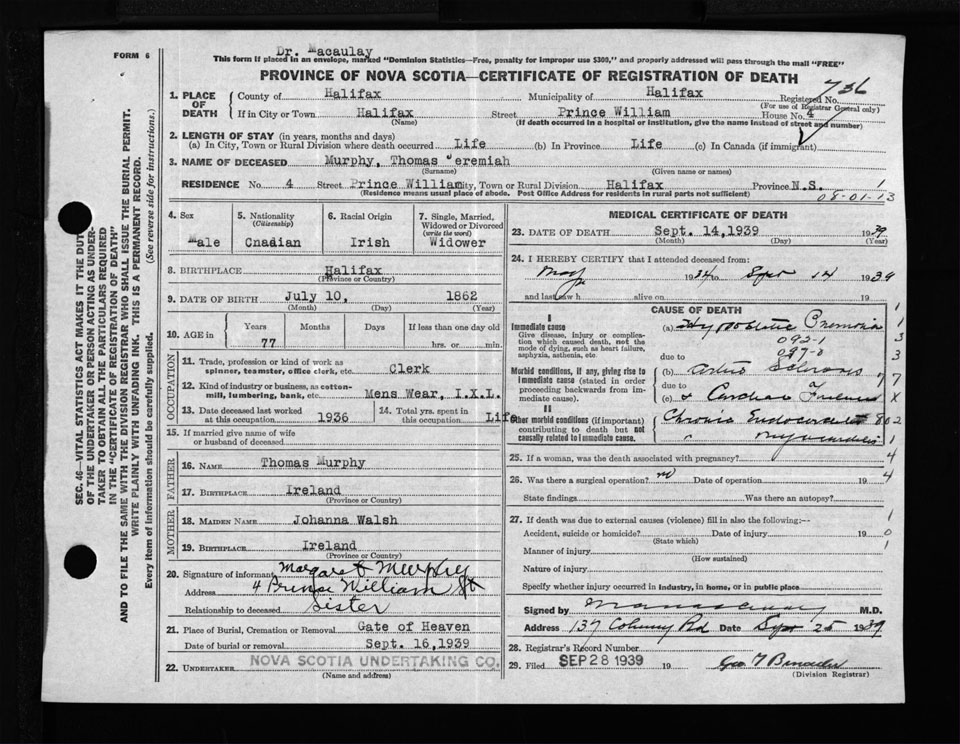 Dr. Macaulay
FORM 6
This form if placed in an envelope, marked "Dominion Statistics—Free, penalty for improper use $300," and properly addressed will pass through the mail "FREE"
PROVINCE OF NOVA SCOTIA—CERTIFICATE OF REGISTRATION OF DEATH
736
1. PLACE OF DEATH County of Halifax Municipality of Halifax Registered No.
(For use of Registrar General only)
If in City or Town Halifax Street Prince William House No. 4
(Name) (If death occurred in a hospital or institution, give the name instead of street and number)
2. LENGTH OF STAY (in years, months and days)
(a) In City, Town or Rural Division where death occurred Life (b) In Province Life (c) In Canada (if immigrant)
3. NAME OF DECEASED Murphy, Thomas 'eremiah
(Surname) (Given name or names)
RESIDENCE No. 4 Street Prince William City, Town or Rural Division Halifax Province N.S. 1
(Residence means usual place of abode. Post Office Address for residents in rural parts not sufficient)
08-01-13
4. Sex
5. Nationality (Citizenship)
6. Racial Origin
7. Single, Married, Widowed or Divorced (write the word)
Male Cnadian Irish Widower
8. BIRTHPLACE Halifax
9. DATE OF BIRTH July 10, 1862
(Month) (Day) (Year)
10. AGE in Years Months Days If less than one day old
77 hrs. or min.
OCCUPATION
11. Trade, profession or kind of work as spinner, teamster, office clerk, etc. Clerk
12. Kind of industry or business, as cotton-mill, lumbering, bank, etc. Mens Wear, I.X.L.
13. Date deceased last worked at this occupation 1936
14. Total yrs. spent in this occupation Life
15. If married give name of wife or husband of deceased
FATHER
16. NAME Thomas Murphy
17. BIRTHPLACE Ireland
(Province or Country)
MOTHER
18. MAIDEN NAME Johanna Walsh
19. BIRTHPLACE Ireland
(Province or Country)
20. Signature of informant Margaret Murphy
Address 4 Prince William St
Relationship to deceased Sister
21. Place of Burial, Cremation or Removal Gate of Heaven
Date of burial or removal Sept. 16,1939
22. UNDERTAKER NOVA SCOTIA UNDERTAKING CO.
(Name and address)
MEDICAL CERTIFICATE OF DEATH
23. DATE OF DEATH Sept. 14,1939 1939
(Month) (Day) (Year)
24. I HEREBY CERTIFY that I attended deceased from:
May 1934 to Sept 14 1939
and last saw h alive on 19
CAUSE OF DEATH
I
Immediate cause
Give disease, injury or complication which caused death, not the mode of dying, such as heart failure, asphyxia, asthenia, etc.
(a) Hypostatic Pnemonia
092-1
097-0
due to
Morbid conditions, if any, giving rise to immediate cause (stated in order proceeding backwards from immediate cause).
(b) Arterio Sclerosis
due to
(c) & Cardiac
II
Other morbid conditions (if important) contributing to death but not causally related to immediate cause.
Chronic Endocarditis
" Myocarditis
25. If a woman, was the death associated with pregnancy?
26. Was there a surgical operation? no Date of operation 19
State findings Was there an autopsy?
27. If death was due to external causes (violence) fill in also the following:—
Accident, suicide or homicide? Date of injury 19
(State which)
Manner of injury
(How sustained)
Nature of injury
Specify whether injury occurred in industry, in home, or in public place
Signed by M.D.
Address 137 Date Sept 25 1939
28. Registrar's Record Number
29. Filed SEP 28 1939 19
(Division Registrar)
SEC. 46—VITAL STATISTICS ACT MAKES IT THE DUTY OF THE UNDERTAKER OR PERSON ACTING AS UNDERTAKER TO OBTAIN ALL THE PARTICULARS REQUIRED IN THE "CERTIFICATE OF REGISTRATION OF DEATH"
AND TO FILE THE SAME WITH THE DIVISION REGISTRAR WHO SHALL ISSUE THE BURIAL PERMIT.
WRITE PLAINLY WITH UNFADING INK. THIS IS A PERMANENT RECORD.
Every item of information should be carefully supplied. (See reverse side for instructions.)